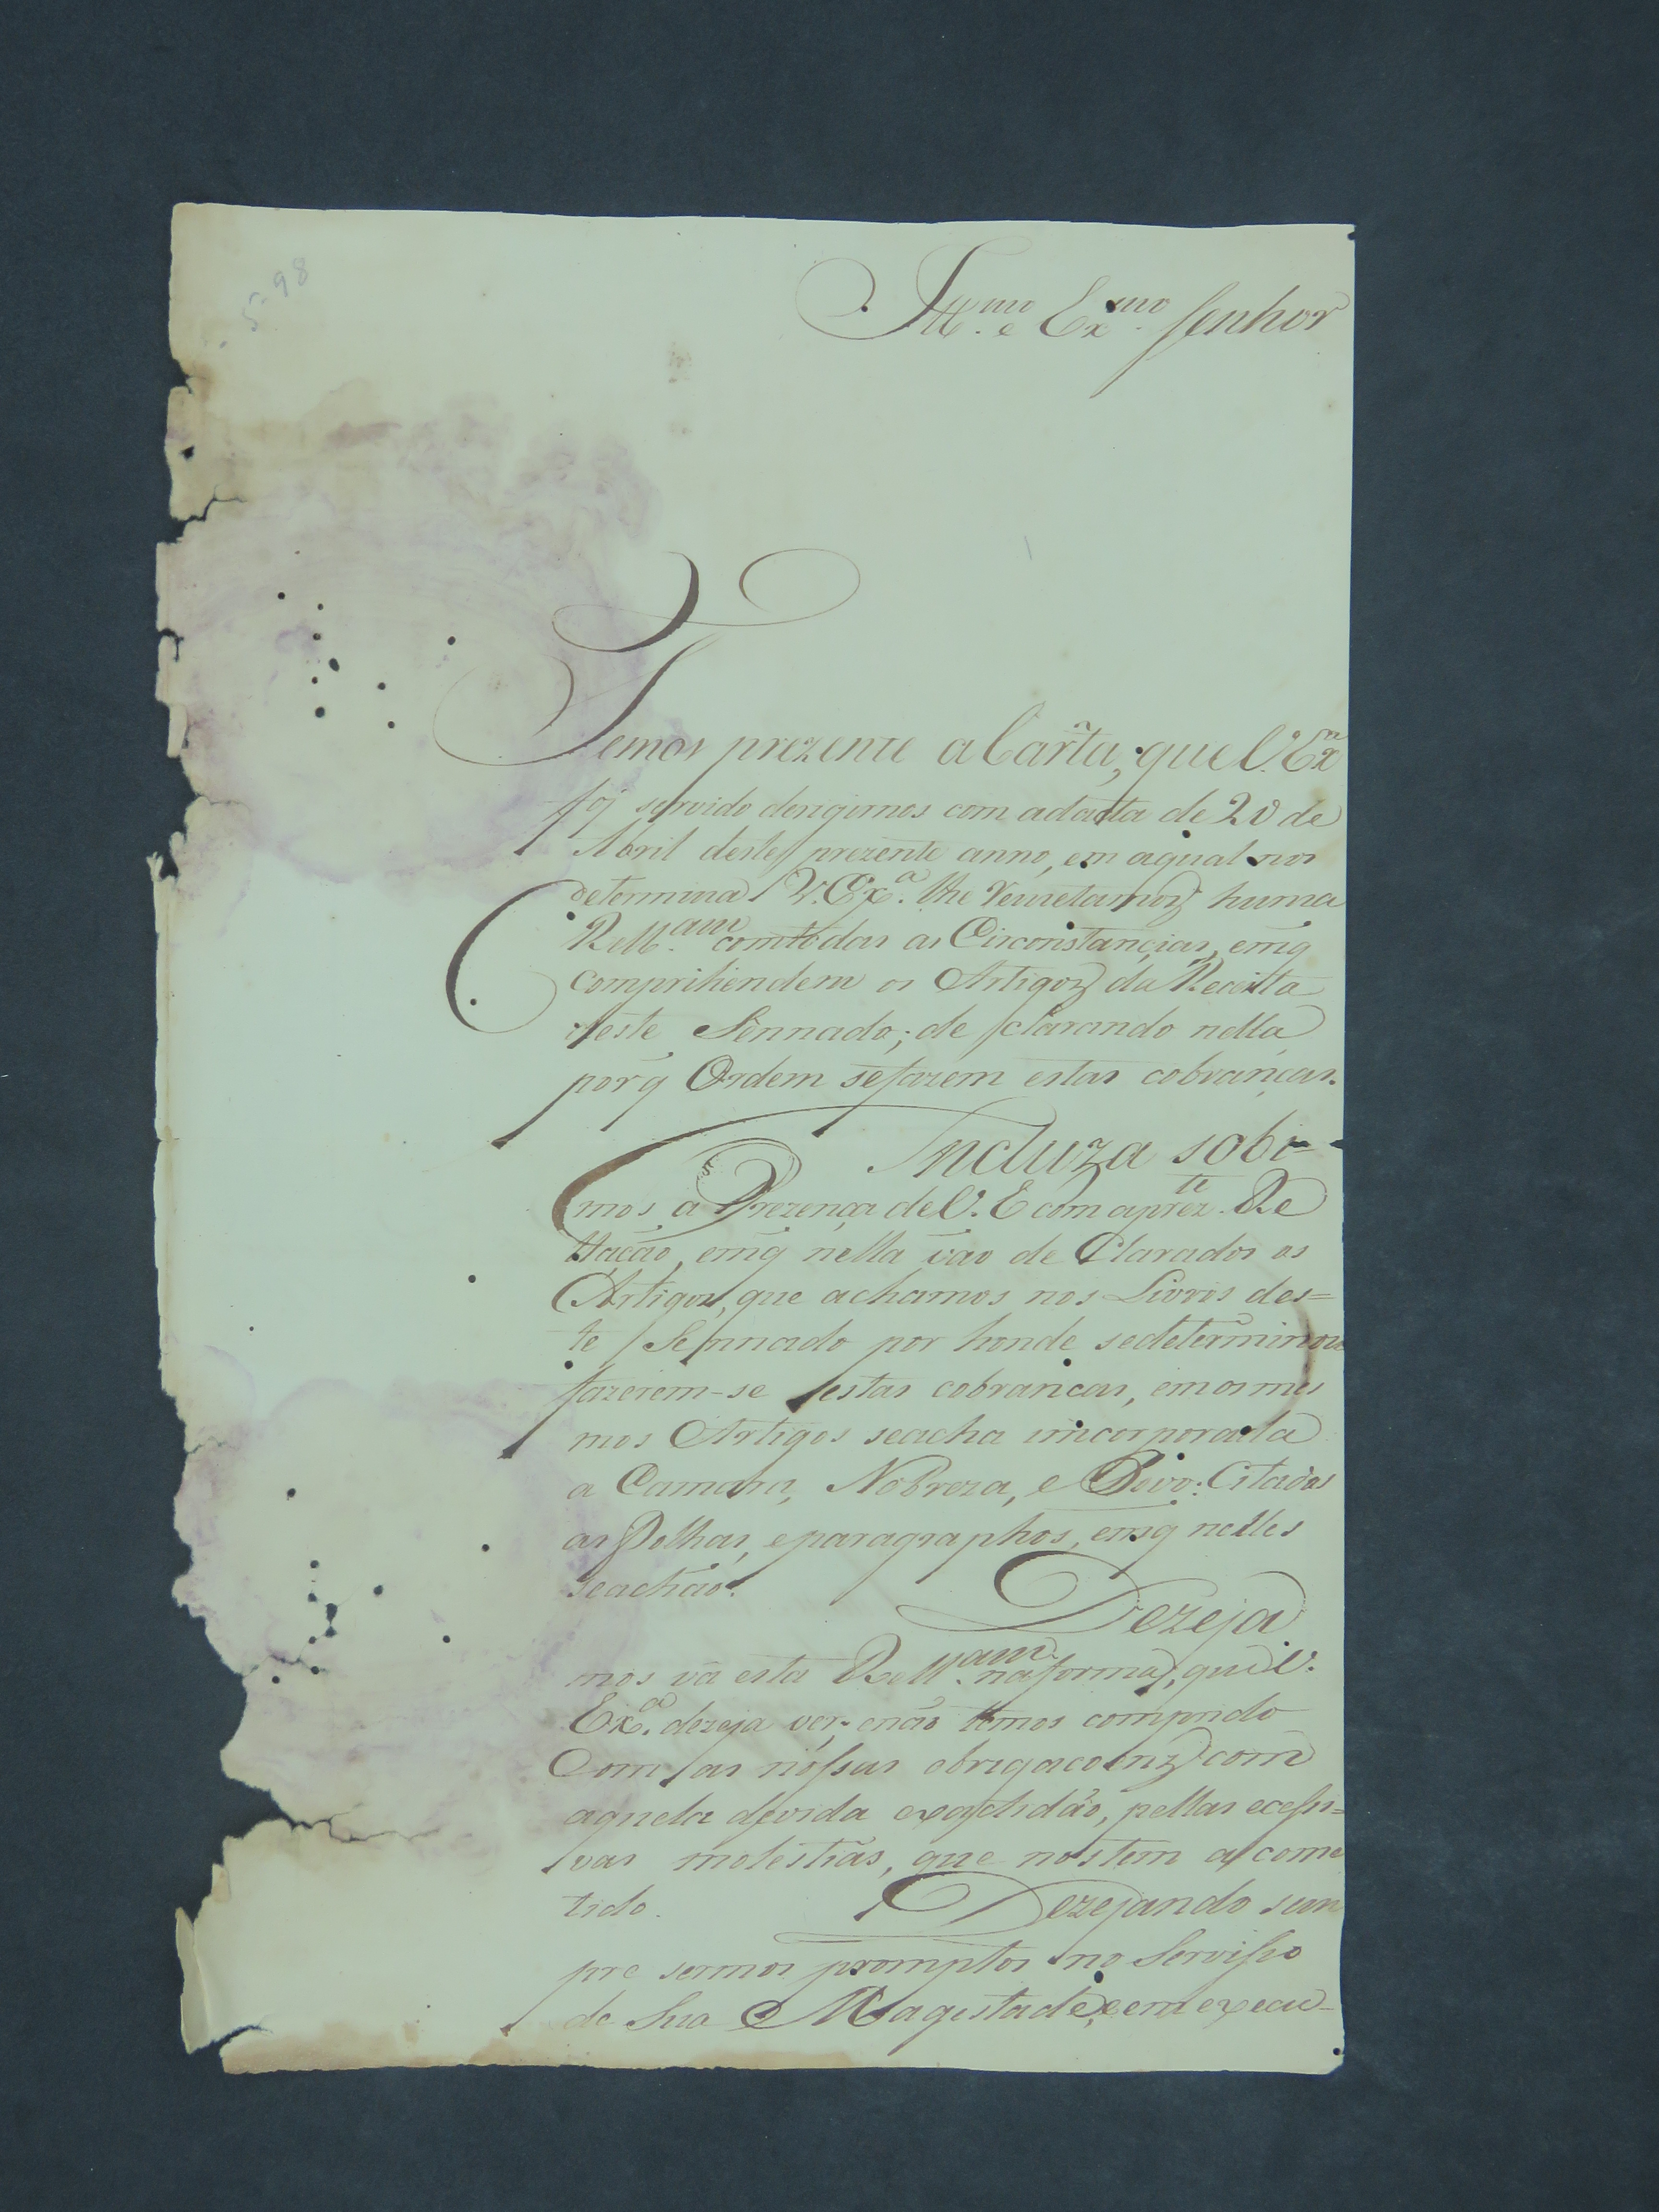 5-98
Ill.mo e Ex.mo Senhor
Temos prezente a Carta, que V. Ex.a
foj servido derigirnos com adacta de 20 de
Abril deste prezente anno, em aqual nos
determina V. Ex.a lhe remetamoz huma
Rell.am comtodas as Circonstançias, emq̃
comprihendem os Artigoz da Receita
deste Sennado; de clarando nella
porq̃ Ordem sefazem estas cobranças.
Incluza sobi=
mos a Prezença de V. E com aprez.te Re
llação, emq̃ nella vão de Clarados os
Artigos, que achamos nos Livros des=
te Sennado por honde sedeterminou
fazerem-se estas cobrancas, emosmes
mos Artigos seacha imcorporada
a Camara, Nobreza, e Povo: Citados
as Folhas, eparagraphos, emq̃ nelles
seachão.
Dezeja
mos vá esta Rell.am naforma, que V.
Ex.a dezeja ver, enão temos comprido
Com as nossas obrigacoinz com
aquela devida exactidão, pellas ecessi=
vas molestias, que nostem a come
tido.
Dezejando sem
pre sermos promptos no Servisso
de Sua Magistade, e em execu-